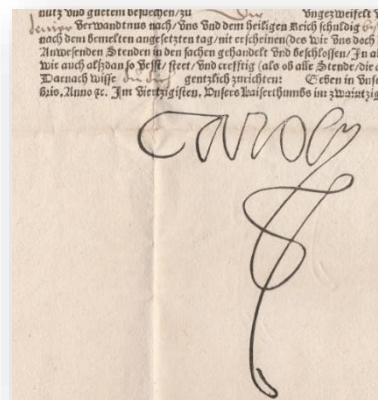 nutz vnd guetem besuechen/zu vngezweifelt
verwandtnus nach/vns vnd dem heiligen Reich schuldig
nach dem bemelten angesetzten tag/nit erscheinen/des wir vns doch
Anwesenden Stenden in den sachen gehandelt vnd beschlossen/In al
wie auch alßdan so vesst/steet/vnd crefftig (als ob alle Stende/die
Darnach wisse gentzlich zurichten: Geben in vnse
bris, Anno ꝛc. Im viertzigisten, Vnsers Kaiserthumbs im zwaintzig